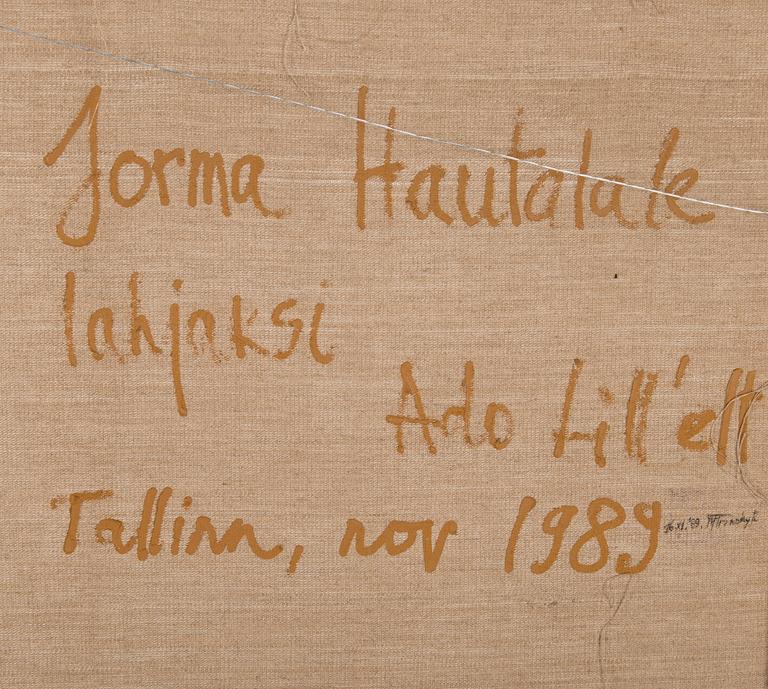 Jorma Hautalale
lahjaksi
Ado Lill'elt
Tallinn, nov 1989